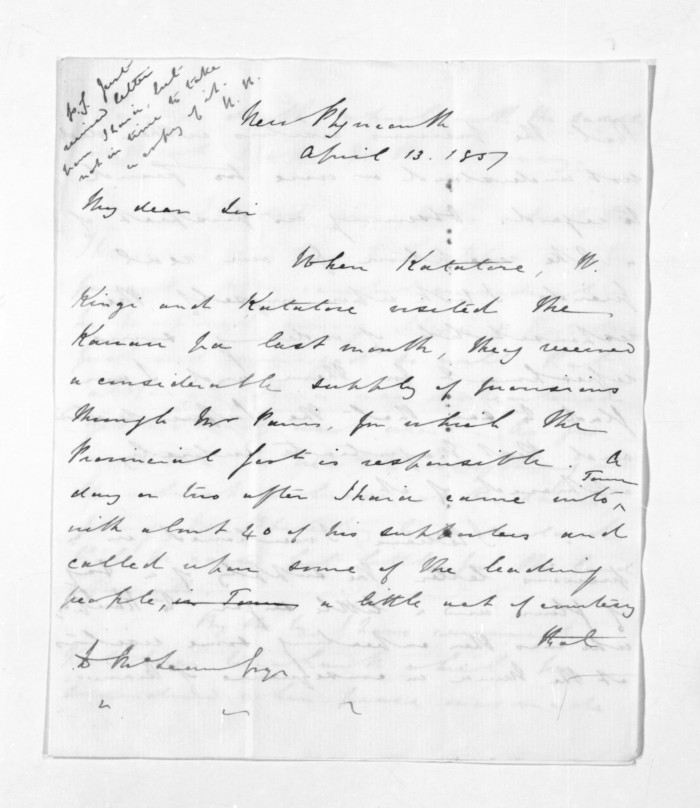 P.S. Just
received letter
from Ihaia, but
not in time to take
a copy of it.
H. H.
New Plymouth
April 13. 1857
My dear Sir
When Katatore, W.
Kingi and Katatore visited the
Kawau pa last month, they received
a considerable supply of provisions
through Mr Parris, for which the
Provincial Govt is responsible. A
day or two after Ihaia came into Town
with about 40 of his supporters and
called upon some of the leading
people, in Town a little act of courtesy
that
D McLean Esqr